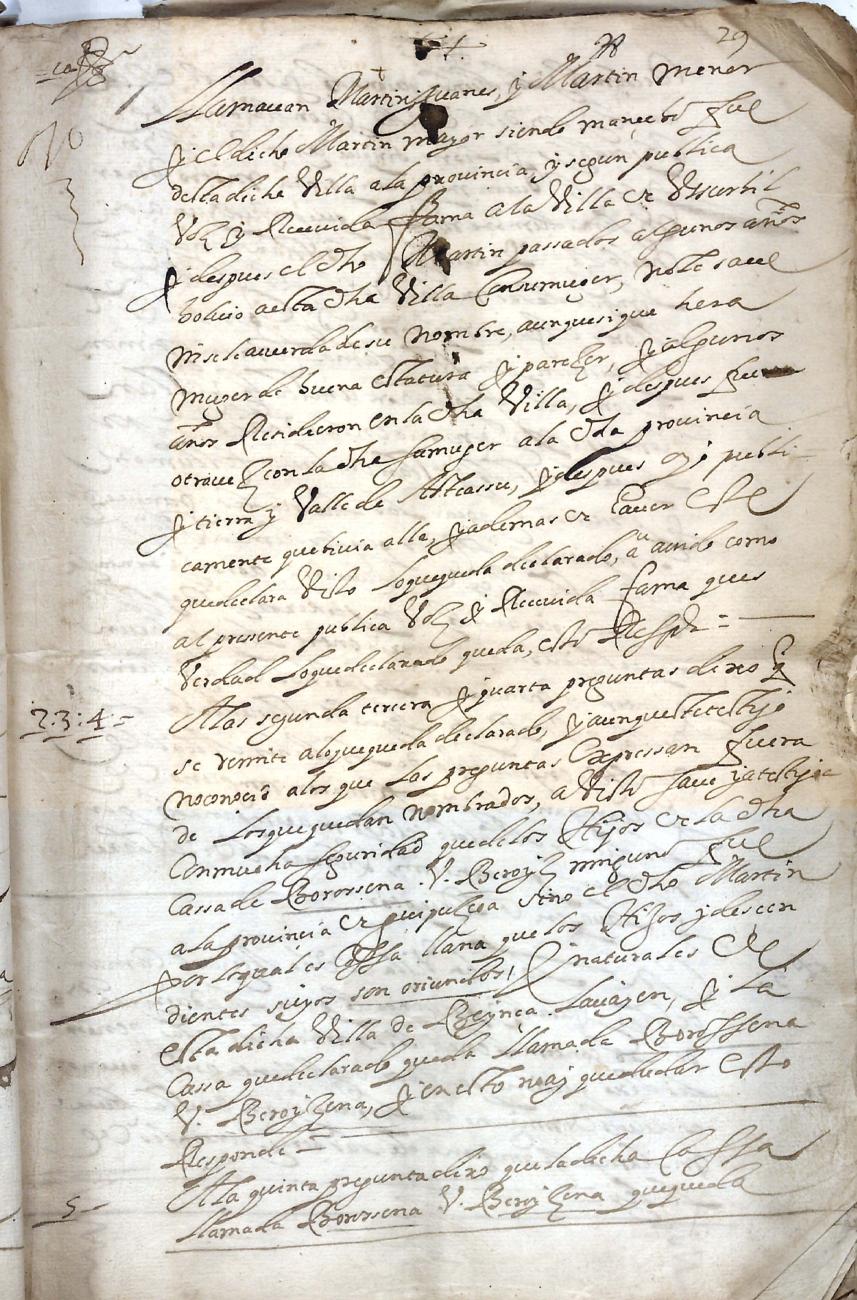 29
llamavan Martin Juanes, y Martin menor
y el dicho Martin mayor siendo mancebo fue
desta dicha Villa a la provincia, y segun publica
Voz y Reçevida fama a la Villa de Vsurbil
y despues el dho Martin passados algunos años
bolvio a esta dha Villa con su muger, no le save
ni se le acuerda de su nombre, aunque si que hera
muger de buena estatura y parezer, y algunos
años Residieron en la dha Villa, y despues fue
otra vez con la dha su muger a la dha provincia
y tierra y Valle de Asteassu, y despues oyo publi
camente que vivia alla, y ademas de haver este
que declara Visto lo que queda declarado, a avido como
al presente publica Voz y Reçevida fama que es
Verdad lo que declarado queda, esto Respde =
2.3:4 =
A las segunda tercera y quarta preguntas dixo q
se remite a lo que queda declarado, y aunque este testigo
no conocio a los que las preguntas expressan fuera
de los que quedan nombrados, a Visto save y atestigua
con mucha seguridad que de los Hijos de la dha
Cassa de Borossena V. Beroiz ninguno fue
a la provincia de guipuzcoa sino el dho Martin
por lo qual es cossa llana que los Hijos y descen
dientes suyos son oriundos, y naturales de
esta dicha Villa de Beynça Lavayen, y La
Cassa que declarado queda llamada Borossena
V. Beroyzena, y en esto no ay que dudar esto
Responde =
5 -
A la quinta pregunta dixo que la dicha Cassa
llamada Borossena V. Beroyzena que queda